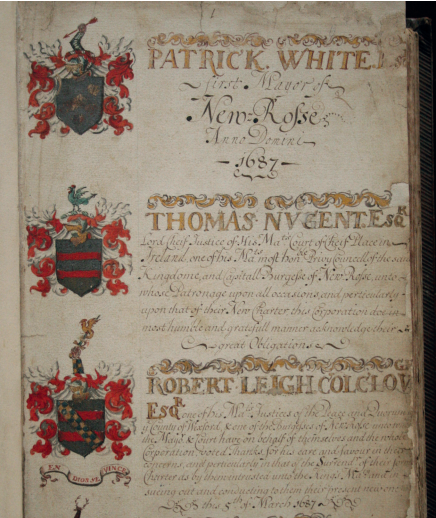 PATRICK WHITE
first Mayor of
New-Rosse
Anno Domini
1687
THOMAS NVGENT Esqr
Lord cheif Justice of His Maties Court of cheif Place in
Ireland, one of his Maties most honble Privy councell of the said
Kingdome, and capitall Burgesse of New Rosse, unto
whose Patronage upon all occasions, and perticularly
upon that of their New Charter this corporation does in
most humble and gratefull manner acknowledge their
great Obligations
ROBERT LEIGH COLCLOV
Esqr one of his Maties Justices of the Peace and Quorum
y County of Wexford, & one of the Burgesses of New Rosse
the Mayor & Court have on behalf of themselves and the whole
Corporation voted Thanks for his care and favour in their
concerns, and perticularly in that of the Surrendr of their form
Charter as by them entrusted unto the Kings
sueing out and conducting to them their present new
this 5th of March 1687
EN DIEU SE VINCE